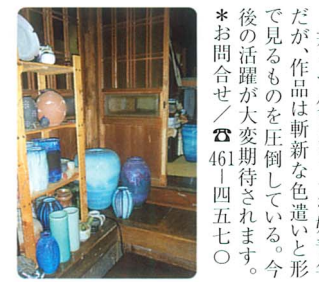 だが、作品は斬新な色遣いと形
で見るものを圧倒している。今
後の活躍が大変期待されます。
＊お問合せ／☎461ー四五七〇